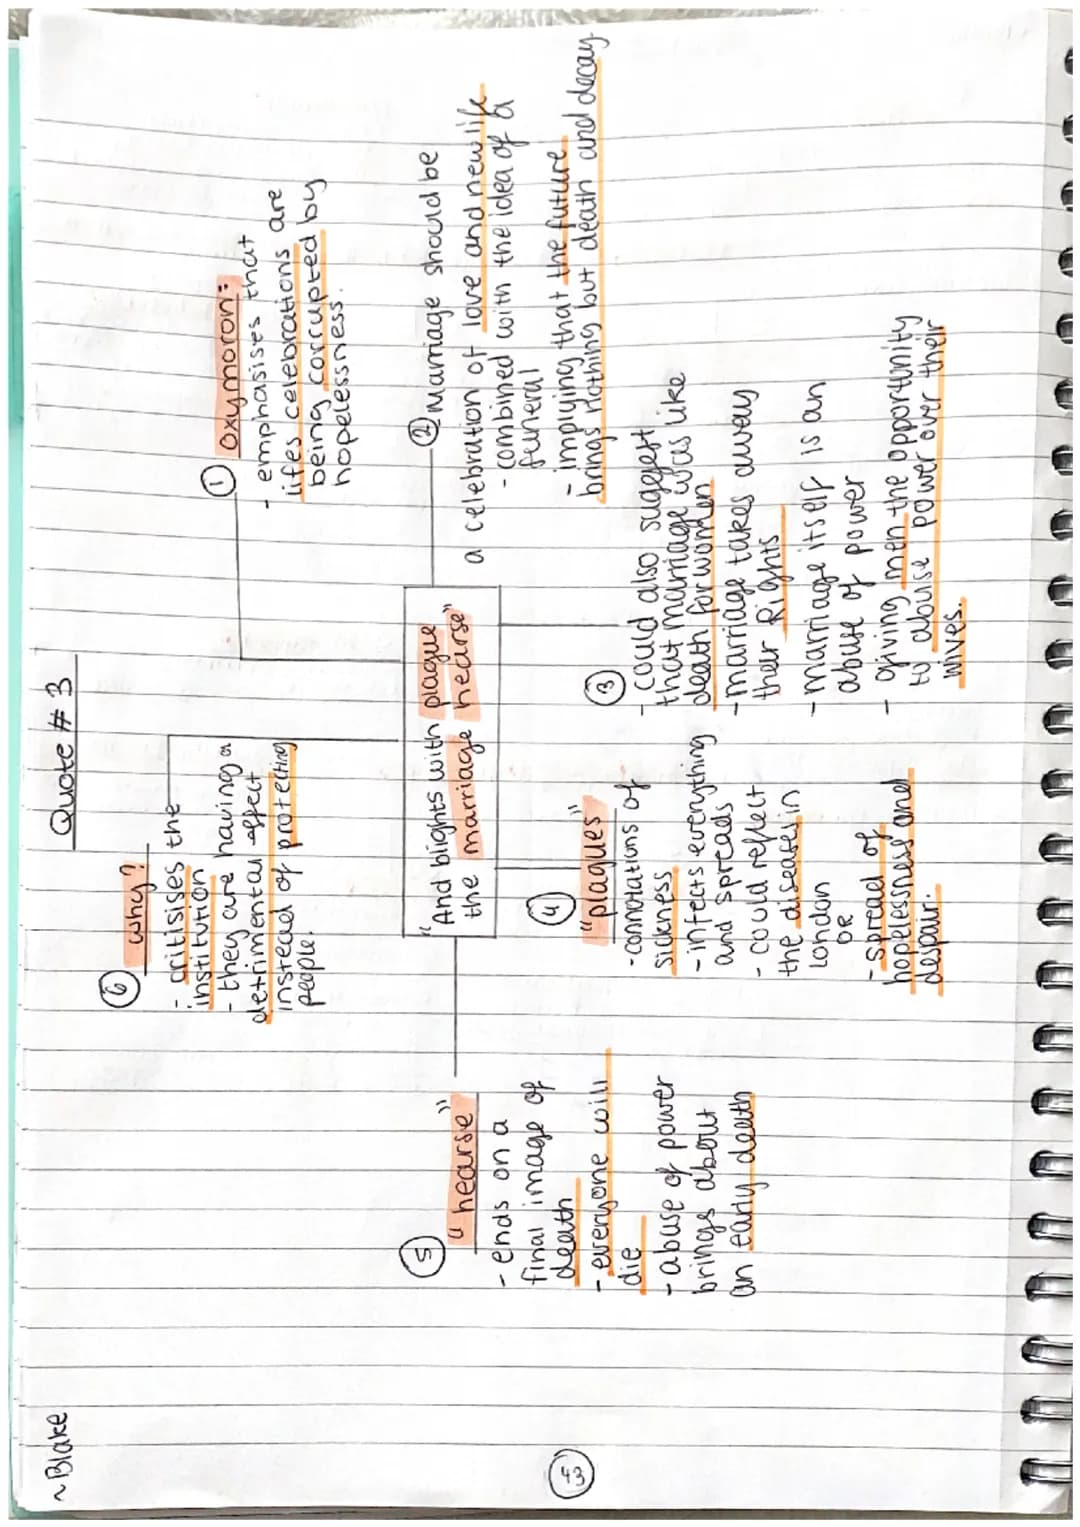 ~Blake
Quote #3
"And blights with plague
the marriage hearse"
① Oxymoron:
- emphasises that
lifes celebrations are
being corrupted by
hopelessness.
② Marriage should be
a celebration of love and new life
- combined with the idea of a
funeral
- implying that the future
brings nothing but death and decay
③
- could also suggest
that marriage was like
death for women
- marriage takes away
their Rights
- marriage itself is an
abuse of power
- giving men the opportunity
to abuse power over their
wives.
④
"plagues"
- connotations of
sickness
- infects everything
and spreads
- could reflect
the diseases in
London
OR
- spread of
hopelesness and
despair.
⑤
"hearse"
- ends on a
final image of
death
- everyone will
die
- abuse of power
brings about
an early death
⑥ why?
- critisises the
institution
- they are having a
detrimental effect
instead of protecting
people.
43